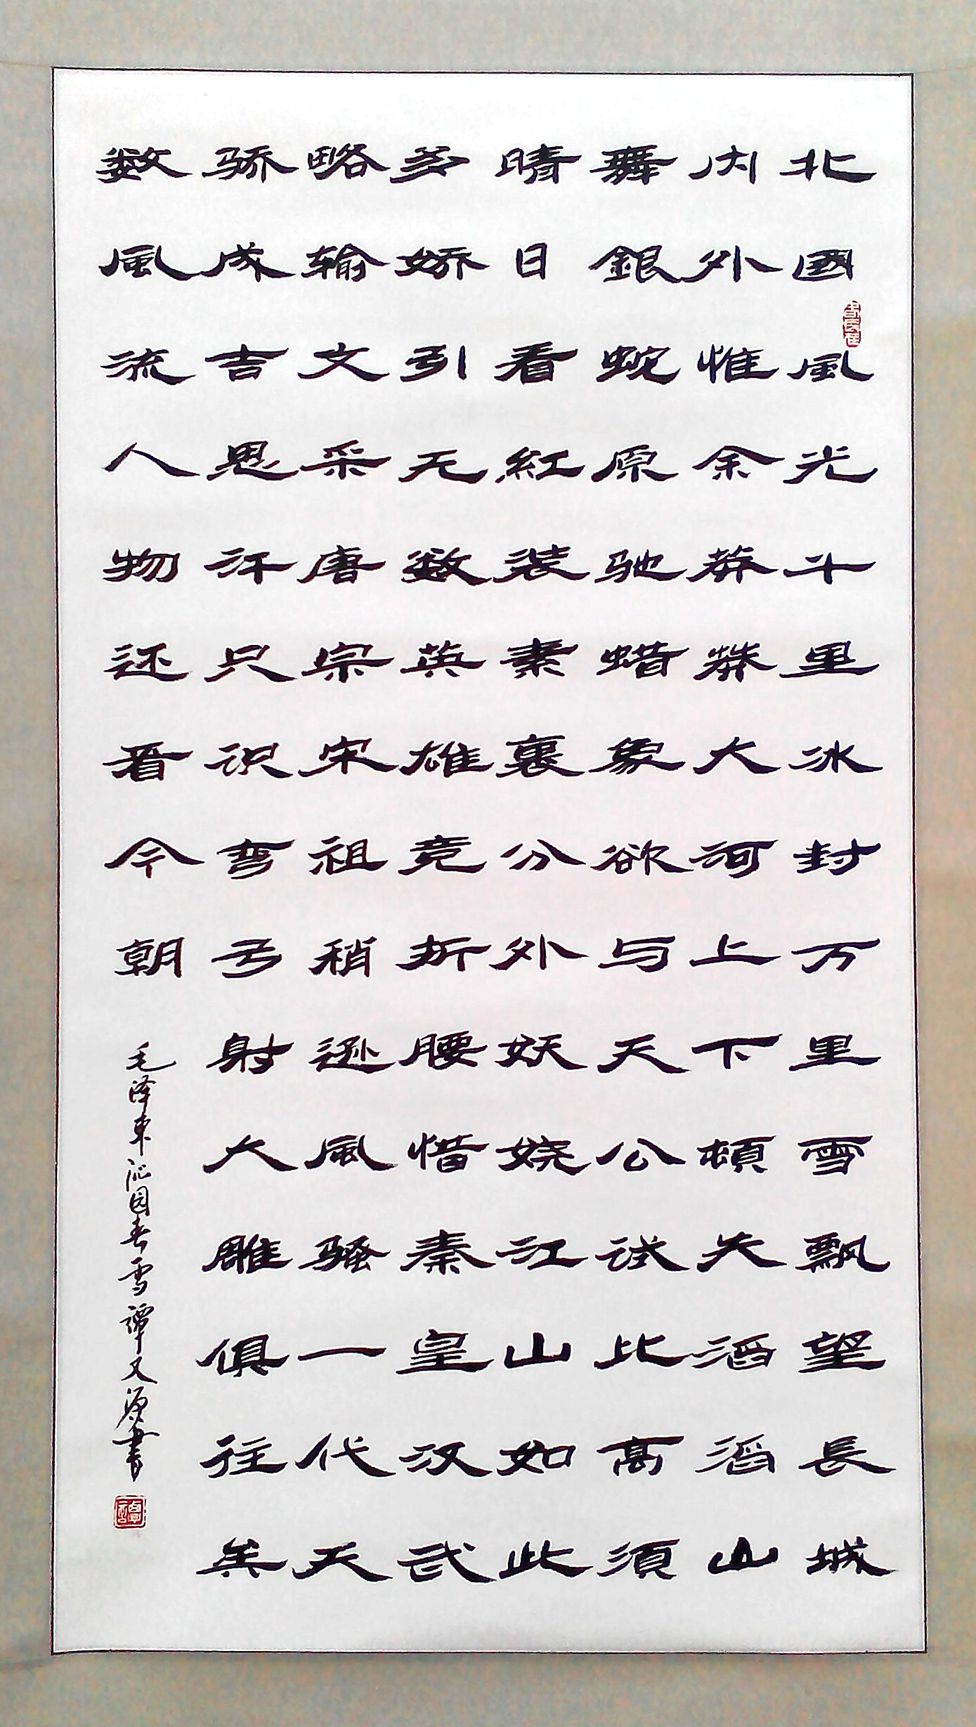 北國風光千里冰封万里雪飘望長城
内外惟余莽莽大河上下頓失滔滔山
舞銀蛇原驰蜡象欲与天公试比高須
晴日看紅装素裹分外妖娆江山如此
多娇引无数英雄竞折腰惜秦皇汉武
略输文采唐宗宋祖稍逊風骚一代天
骄成吉思汗只识弯弓射大雕俱往矣
数風流人物还看今朝
毛泽东沁园春雪譚又源書